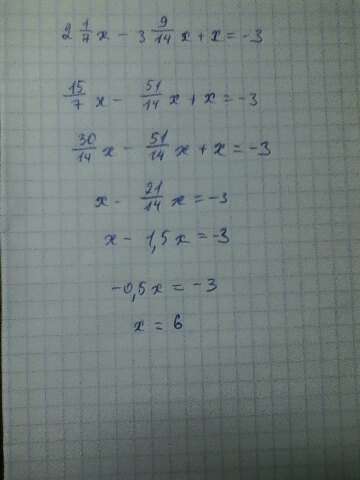 2 1/7 x - 3 9/14 x + x = -3
15/7 x - 51/14 x + x = -3
30/14 x - 51/14 x + x = -3
x - 21/14 x = -3
x - 1,5x = -3
-0,5x = -3
x = 6